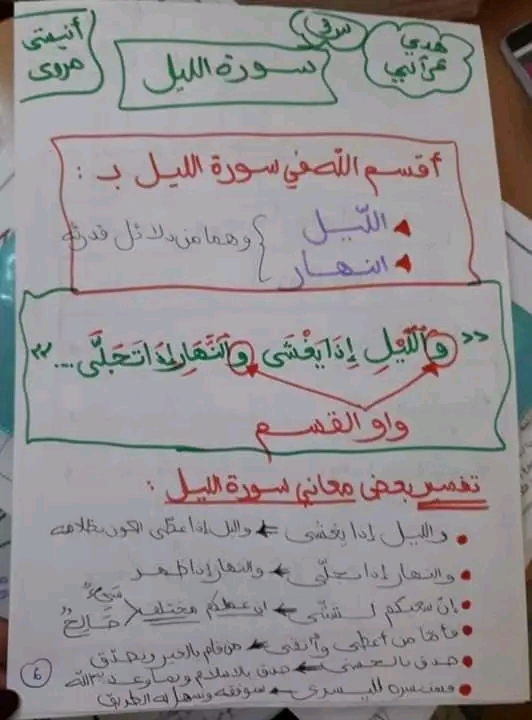 هدي
قرآني
شرفي
سورة الليل
أنيستي
مروى
أقسم الله في سورة الليل بـ :
الليل
النهار
وهما من دلائل قدرته
« وَاللَّيْلِ إِذَا يَغْشَى وَالنَّهَارِ إِذَا تَجَلَّى ... »
واو القسم
تفسير بعض معاني سورة الليل :
والليل إذا يغشى ← والليل إذا غطى الكون بظلامه
والنهار إذا تجلّى ← والنهار إذا ظهر
إنّ سعيكم لشتّى ← إن عملكم مختلف صَالِحٌ
فأمّا من أعطى وأتقى ← من قام بالخير وتصدّق
صدق بالحسنى ← صدق بالإسلام وبما وعد الله
فسنيسره لليسرى ← سنوفقه وسهل له الطريق
6